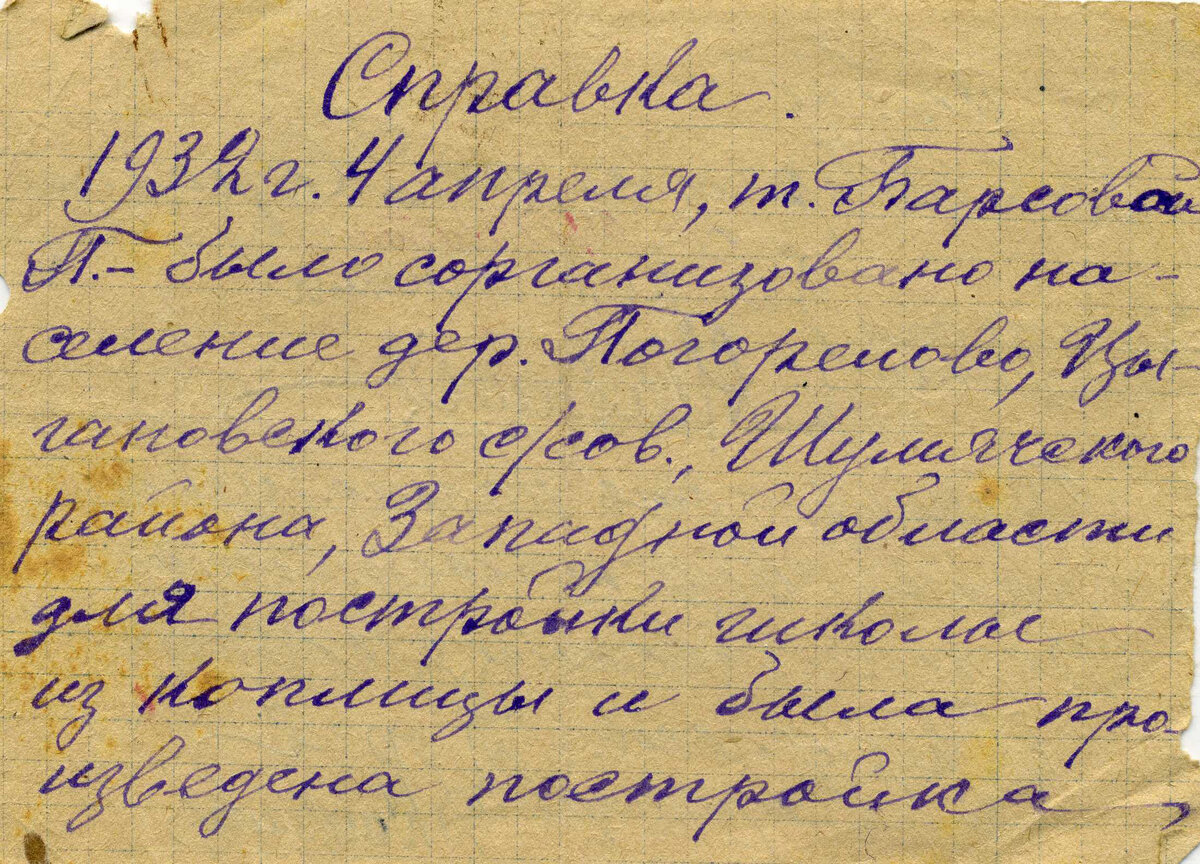 Справка.
1932 г. 4 апреля, т. Барсовой
П.- было сорганизовано на-
селение дер. Погорелово, Цы-
гановского с/сов., Шумячского
района, Западной области
для постройки школы
из коплицы и была про-
изведена постройка,